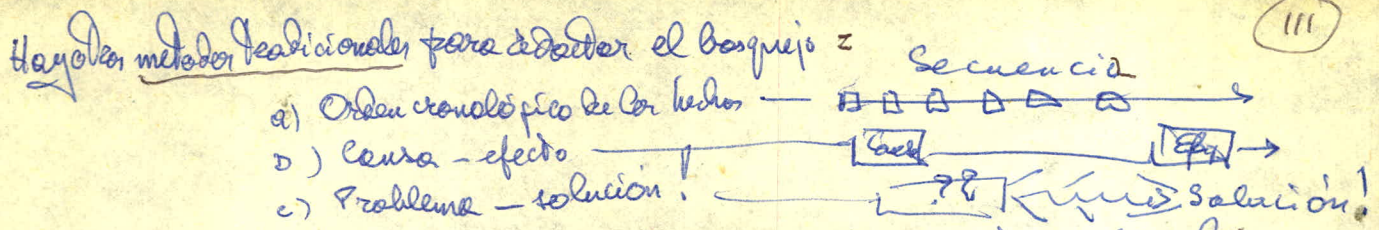 111
Hay otros metodos tradicionales para redactar el bosquejo :
Secuencia
a) Orden cronológico de los hechos —
b) Causa - efecto — Causa
c) Problema - solución! — ?? Solución!